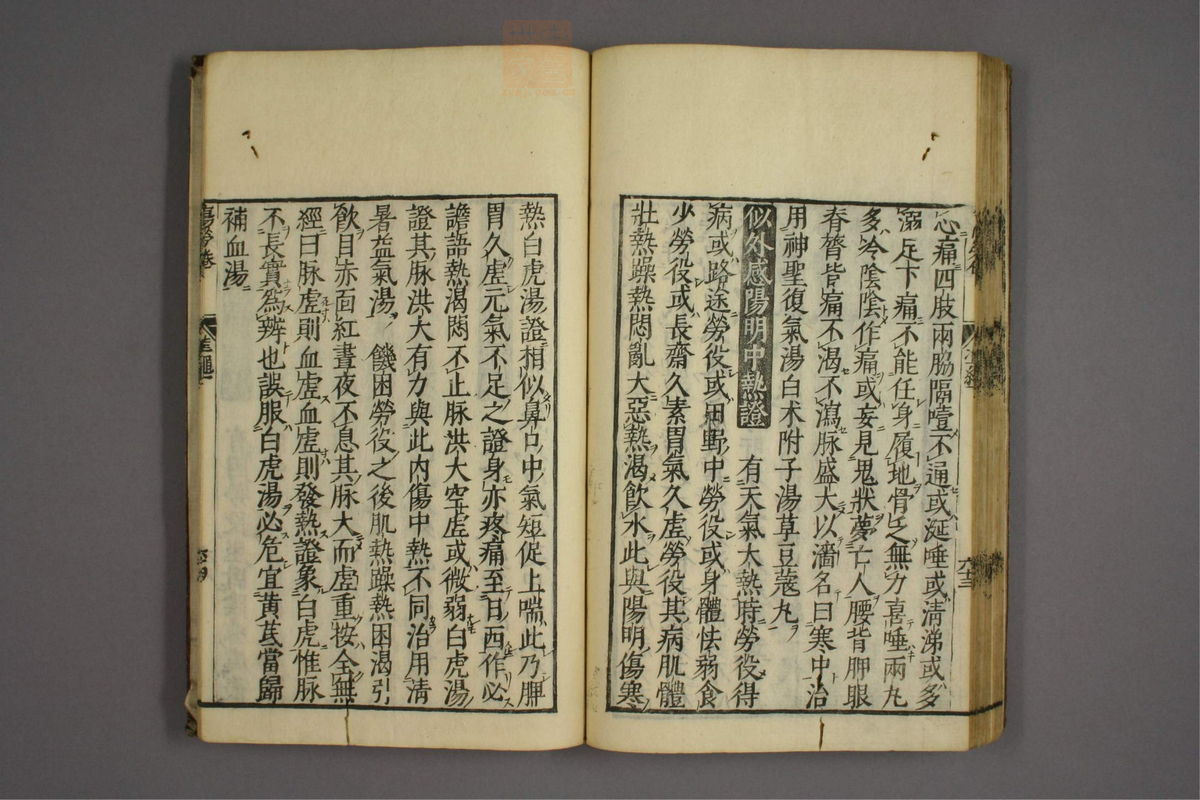 心痛四肢兩脇隔噎不通或涎唾或清涕或多
溺足下痛不能任身履地骨乏無力喜唾兩丸
多冷陰陰作痛或妄見鬼狀夢亡人腰背胛眼
脊膂皆痛不渴不瀉脉盛大以濇名曰寒中治
用神聖復氣湯白术附子湯草豆蔻丸
似外感陽明中熱證 有天氣大熱時勞役得
病或路途勞役或田野中勞役或身體怯弱食
少勞役或長齋久素胃氣久虛勞役其病肌體
壯熱躁熱悶亂大惡熱渴飲水此與陽明傷寒
熱白虎湯證相似鼻口中氣短促上喘此乃脾
胃久虛元氣不足之證身亦疼痛至日西作必
譫語熱渴悶不止脉洪大空虛或微弱白虎湯
證其脉洪大有力與此内傷中熱不同治用清
暑益氣湯 饑困勞役之後肌熱躁熱困渴引
飲目赤面紅晝夜不息其脉大而虛重按全無
經曰脉虛則血虛血虛則發熱證象白虎惟脉
不長實爲辨也誤服白虎湯必危宜黄芪當歸
補血湯